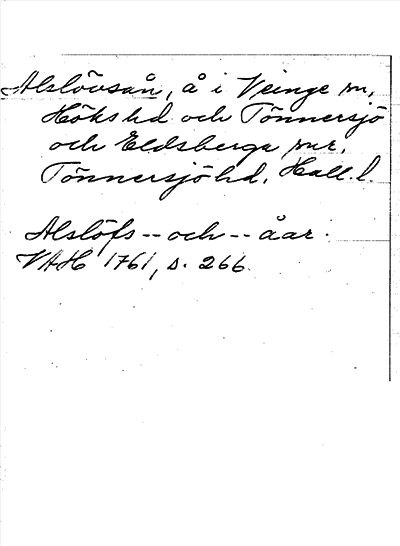 Alslövsån, å i Veinge sn,
Höks hd och Tönnersjö
och Eldsberga snr.
Tönnersjö hd. Hall. l.
Alslöfs -- och -- åar.
VAH 1761, s. 266